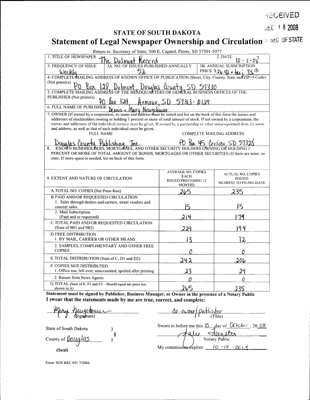 RECEIVED
DEC 18 2008
SEC OF STATE
STATE OF SOUTH DAKOTA
Statement of Legal Newspaper Ownership and Circulation
Return to: Secretary of State, 500 E. Capitol, Pierre, SD 57501-5077
1. TITLE OF NEWSPAPER The Delmont Record 2. DATE 10-1-08
3. FREQUENCY OF ISSUE Weekly
3A. NO. OF ISSUES PUBLISHED ANNUALLY 52
3B. ANNUAL SUBSCRIPTION PRICE
4. COMPLETE MAILING ADDRESS OF KNOWN OFFICE OF PUBLICATION (Street, City, County, State and ZIP+4 Code)
(Not Printers) PO Box 128 Delmont, Douglas County SD 57330
5. COMPLETE MAILING ADDRESS OF THE HEADQUARTERS OR GENERAL BUSINESS OFFICES OF THE
PUBLISHER (Not printers) PO Box 129, Armour, SD 57313-0129
6. FULL NAME OF PUBLISHER:
7. OWNER (If owned by a corporation, its name and address must be stated and also immediately thereunder the names and
FULL NAME COMPLETE MAILING ADDRESS
Douglas County Publishing, Inc. PO Box 45 Corsica SD 57328
8. KNOWN BONDHOLDERS, MORTGAGEES, AND OTHER SECURITY HOLDERS OWNING OR HOLDING 1
PERCENT OR MORE OF TOTAL AMOUNT OF BONDS, MORTGAGES OR OTHER SECURITIES (If there are none, so
state. If more space is needed, list on back of this form.
9. EXTENT AND NATURE OF CIRCULATION
AVERAGE NO. COPIES EACH ISSUED PRECEDING 12 MONTHS
ACTUAL NO. COPIES ISSUED NEAREST TO FILING DATE
A. TOTAL NO. COPIES (Net Press Run) 265 235
B. PAID AND/OR REQUESTED CIRCULATION
1. Sales through dealers and carriers, street vendors and
counter sales 15 15
2. Mail Subscription
(Paid and/or requested) 214 179
C. TOTAL PAID AND/OR REQUESTED CIRCULATION
(Sum of 9B1 and 9B2) 229 194
D. FREE DISTRIBUTION
1. BY MAIL, CARRIER OR OTHER MEANS 13 12
2. SAMPLES, COMPLIMENTARY AND OTHER FREE
COPIES 0 0
E. TOTAL DISTRIBUTION (Sum of C, D1 and D2) 242 206
F. COPIES NOT DISTRIBUTED
1. Office use, left over, unaccounted, spoiled after printing 23 29
2. Return from News Agents 0 0
G. TOTAL (Sum of E, F1 and F2 – Should equal net press run
shown in A) 265 235
Statement must be signed by Publisher, Business Manager, or Owner in the presence of a Notary Public
I swear that the statements made by me are true, correct, and complete:
co-owner/publisher
(Signature) (Title)
State of South Dakota )
Sworn to before me this 15 day of October, 2008
County of Douglas )
Notary Public
(Seal) My commission expires: 10-19-2013